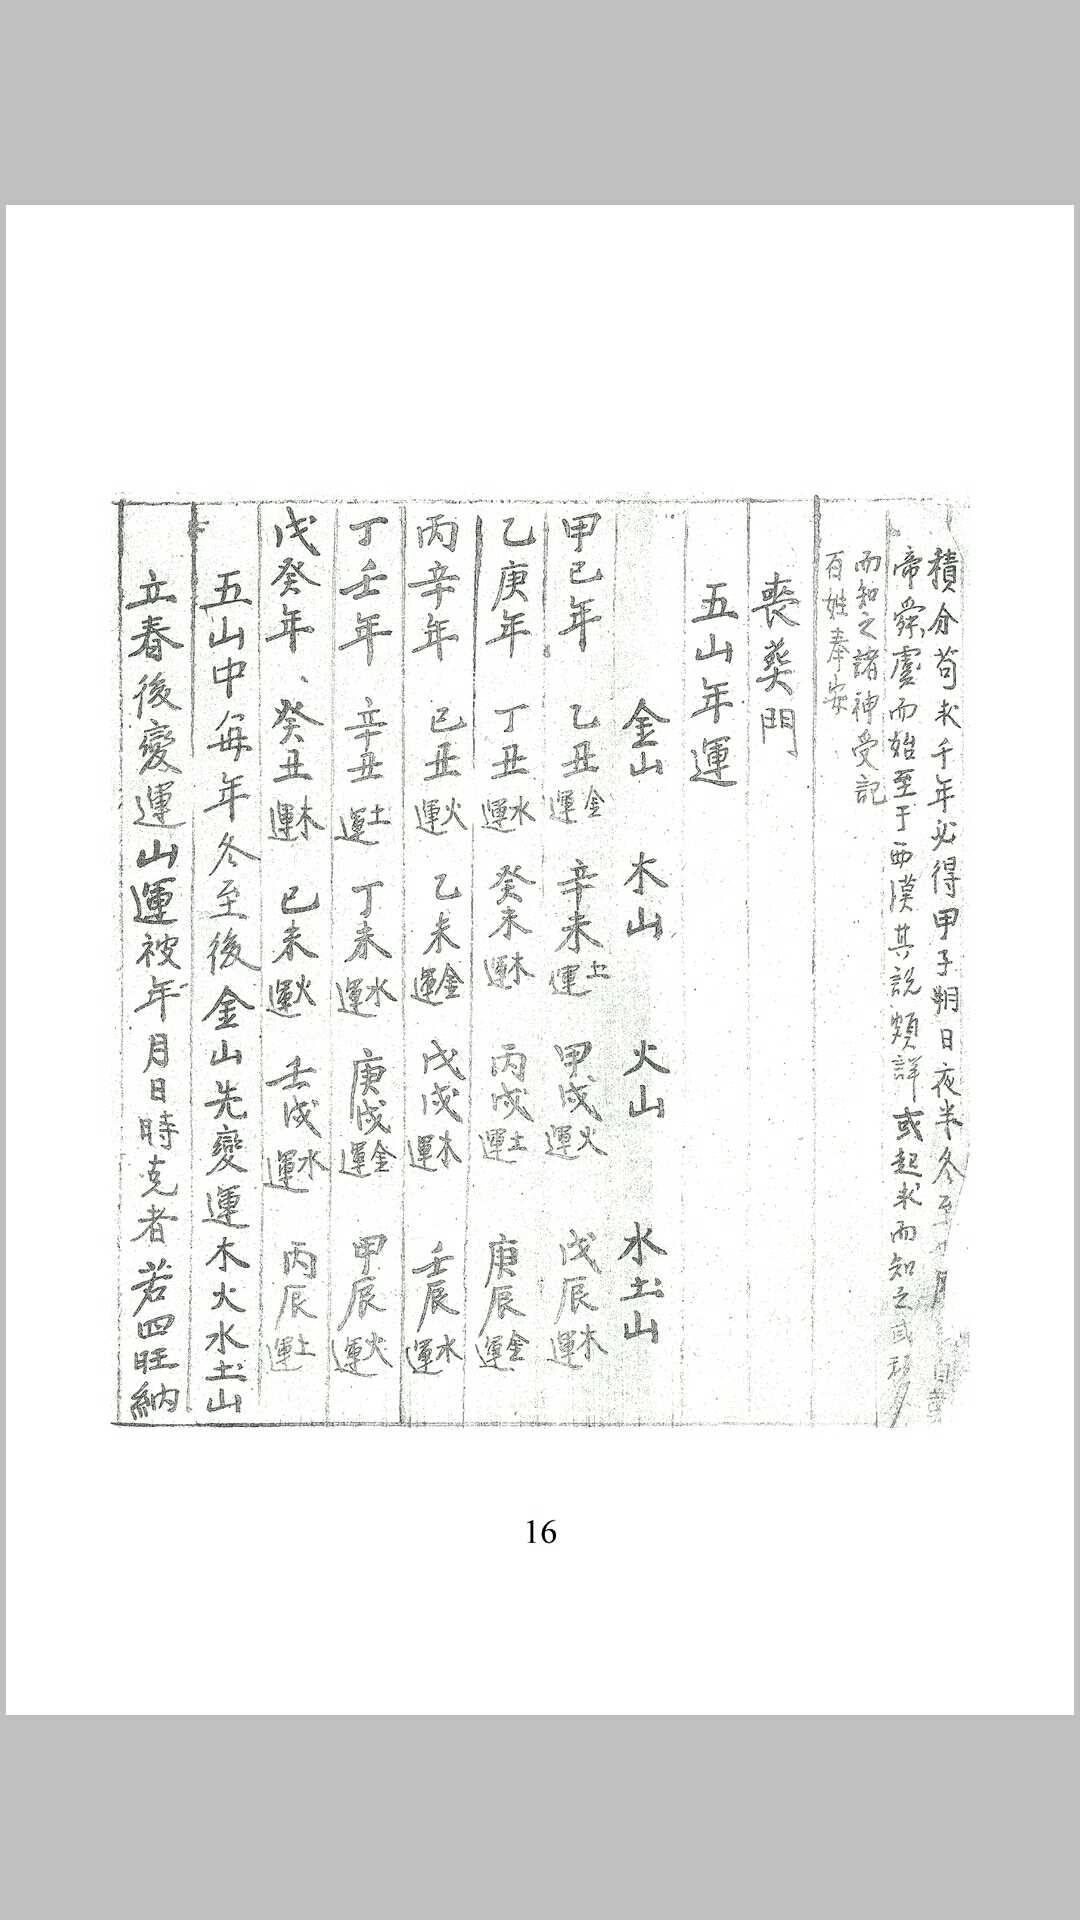 積分苟求千年必得甲子朔日夜半冬至
帝舜虞而始至于西漢其説頗詳或起求而知之
而知之諸神受記
百姓奉安
喪葬門
五山年運
金山 木山 火山 水土山
甲己年 乙丑金運 辛未土運 甲戌火運 戊辰木運
乙庚年 丁丑水運 癸未木運 丙戌土運 庚辰金運
丙辛年 己丑火運 乙未金運 戊戌木運 壬辰水運
丁壬年 辛丑土運 丁未水運 庚戌金運 甲辰火運
戊癸年 癸丑木運 己未火運 壬戌水運 丙辰土運
五山中每年冬至後金山先變運木火水土山
立春後變運山運被年月日時克者若四旺納
16